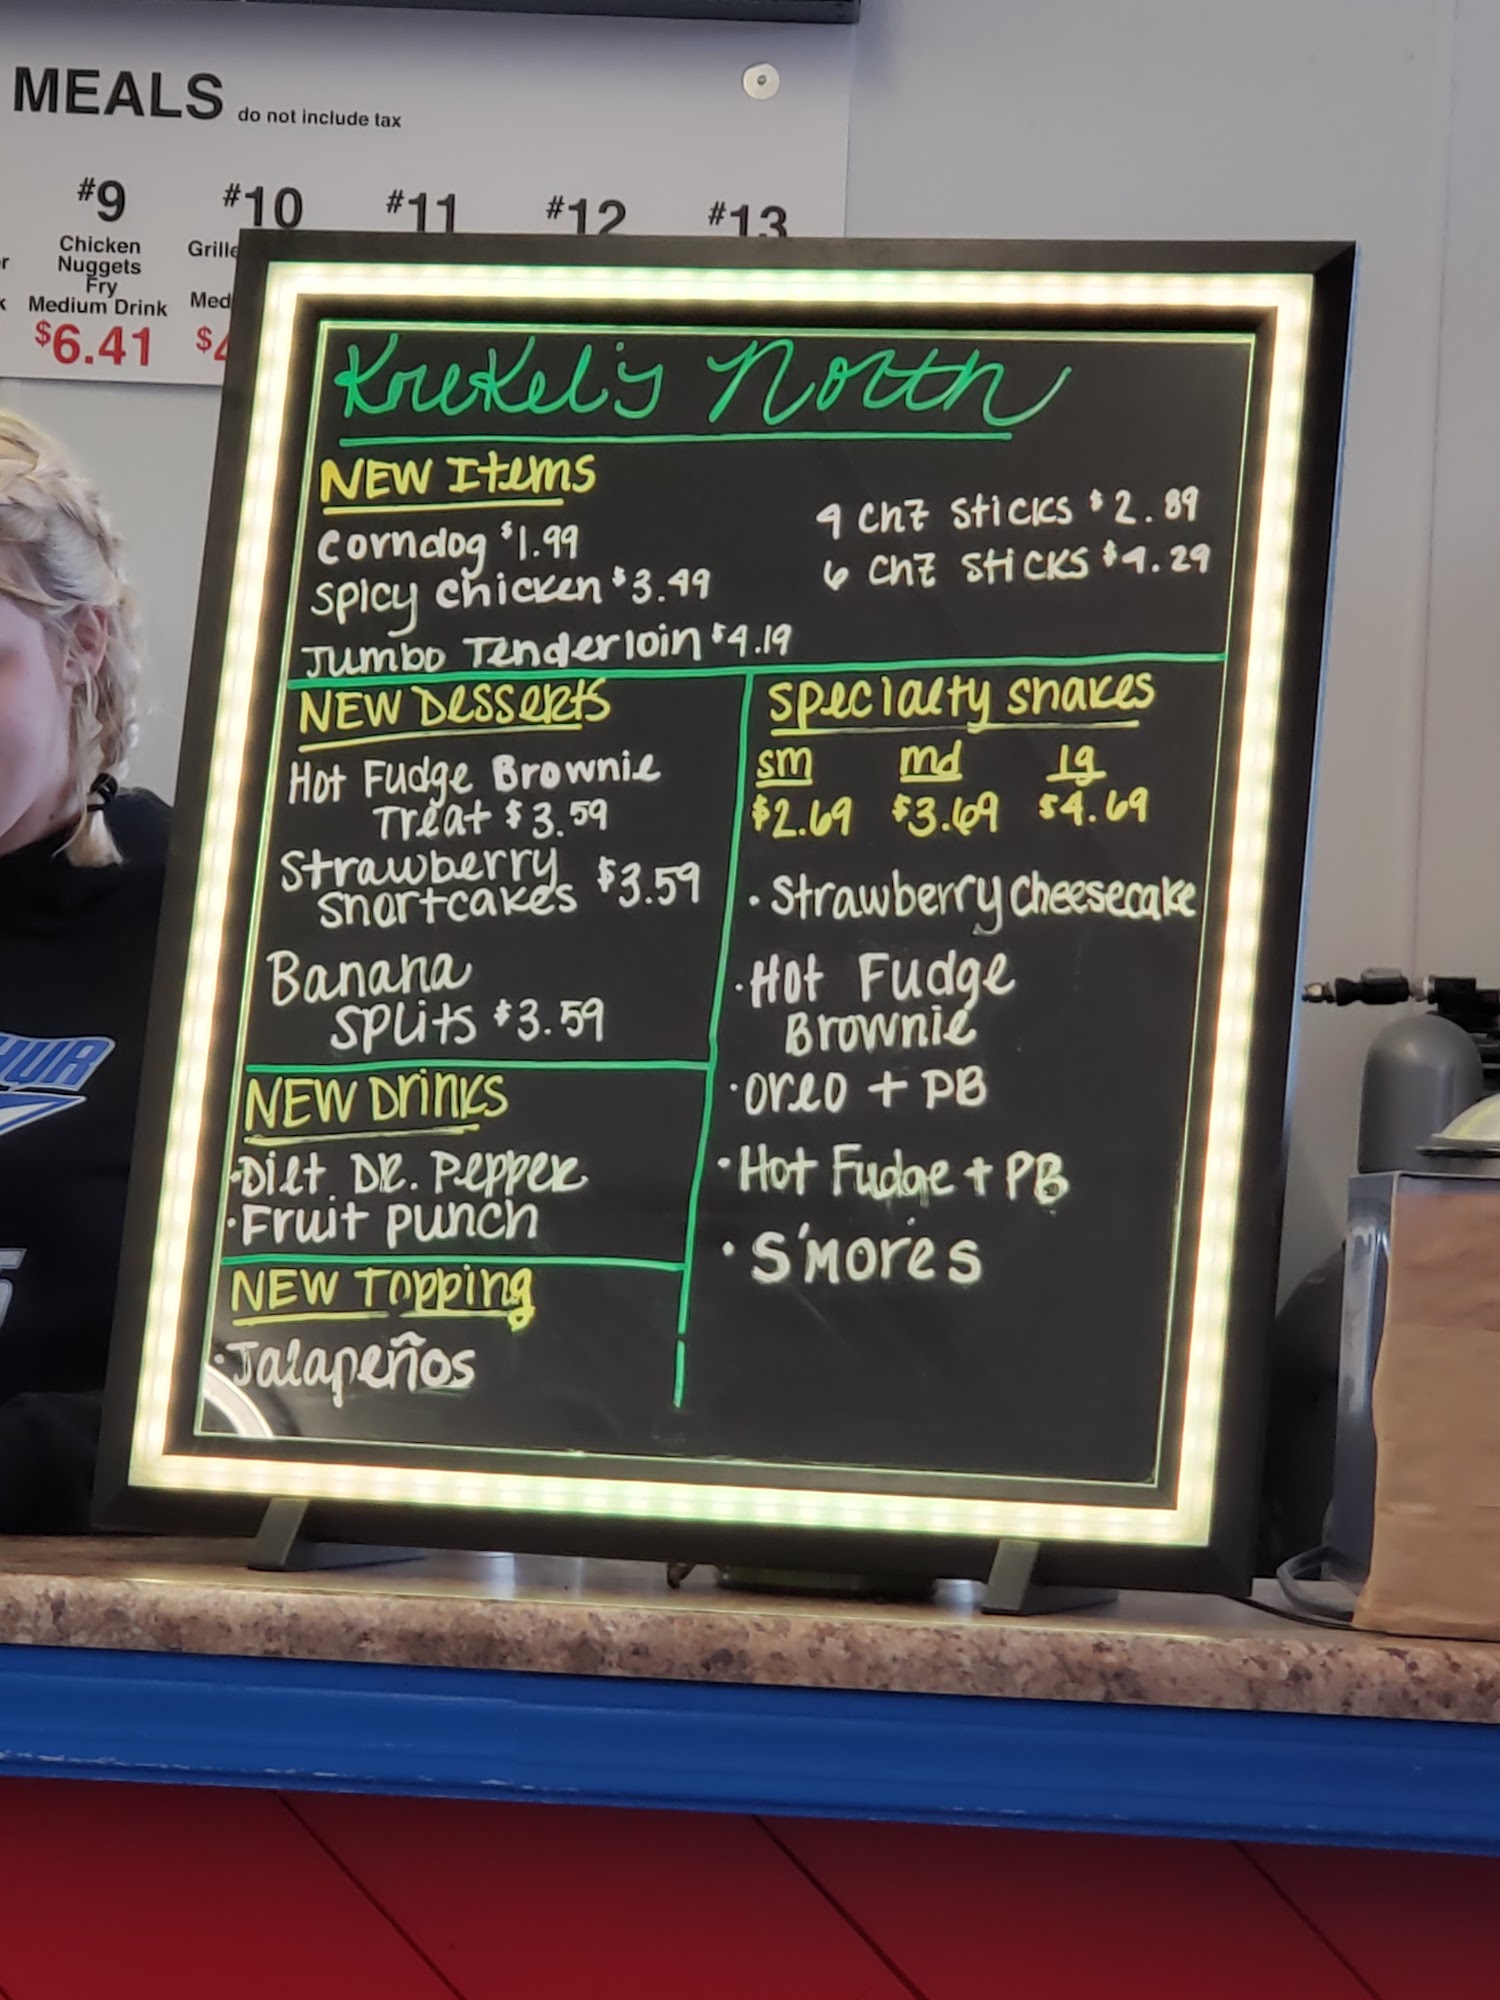 MEALS do not include tax
#9 #10 #11 #12 #13
Chicken
Nuggets
Fry
Medium Drink
$6.41
Krekel's North
NEW Items
Corndog $1.99
Spicy Chicken $3.49
Jumbo Tenderloin $4.19
4 CHZ STICKS $2.89
6 CHZ STICKS $4.29
NEW Desserts
Hot Fudge Brownie
Treat $3.59
Strawberry
Shortcakes $3.59
Banana
Splits $3.59
NEW Drinks
• Diet DR. Pepper
• Fruit punch
NEW Topping
• Jalapeños
Specialty Shakes
sm md lg
$2.69 $3.69 $4.69
• Strawberry Cheesecake
• Hot Fudge
Brownie
• Oreo + PB
• Hot Fudge + PB
• S'mores